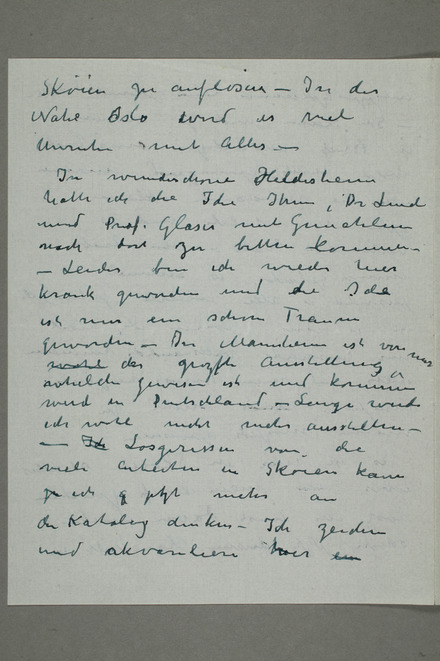 Skøien zu auflösen – In der
Nähe Oslo wird es viel
Unruhe mit Alles –
In wunderschöne Hildesheim
hatte ich die Ide Ihnen, Dr Lind
und Prof. Glaser mit Gemahlin
nach dort zu bitten kommen –
– Leider bin ich wieder hier
krank geworden und die Ide
ist nur ein schöner Traum
geworden – In Mannheim ist von mir
der grøzste Ausstellung
gewesen ist und kommen
wird in Deutschland – Lange werde
ich wohl nicht mehr ausstellen –
– Losgerissen von die
viele Arbeiten in Skøien kann
ich jetzt mehr an
den Katalog denken – Ich zeichne
und akvareliere hier